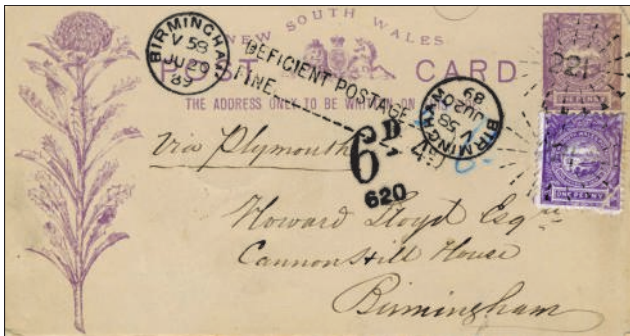 NEW SOUTH WALES
POST CARD
THE ADDRESS ONLY TO BE WRITTEN ON THIS SIDE
BIRMINGHAM
V 5B
JU 20
89
DEFICIENT POSTAGE
FINE
BIRMINGHAM
5B
JU 20
89
6D
620
ONE PENNY
ONE PENNY
via Plymouth
Howard Lloyd Esqre
Cannon Hill House
Birmingham